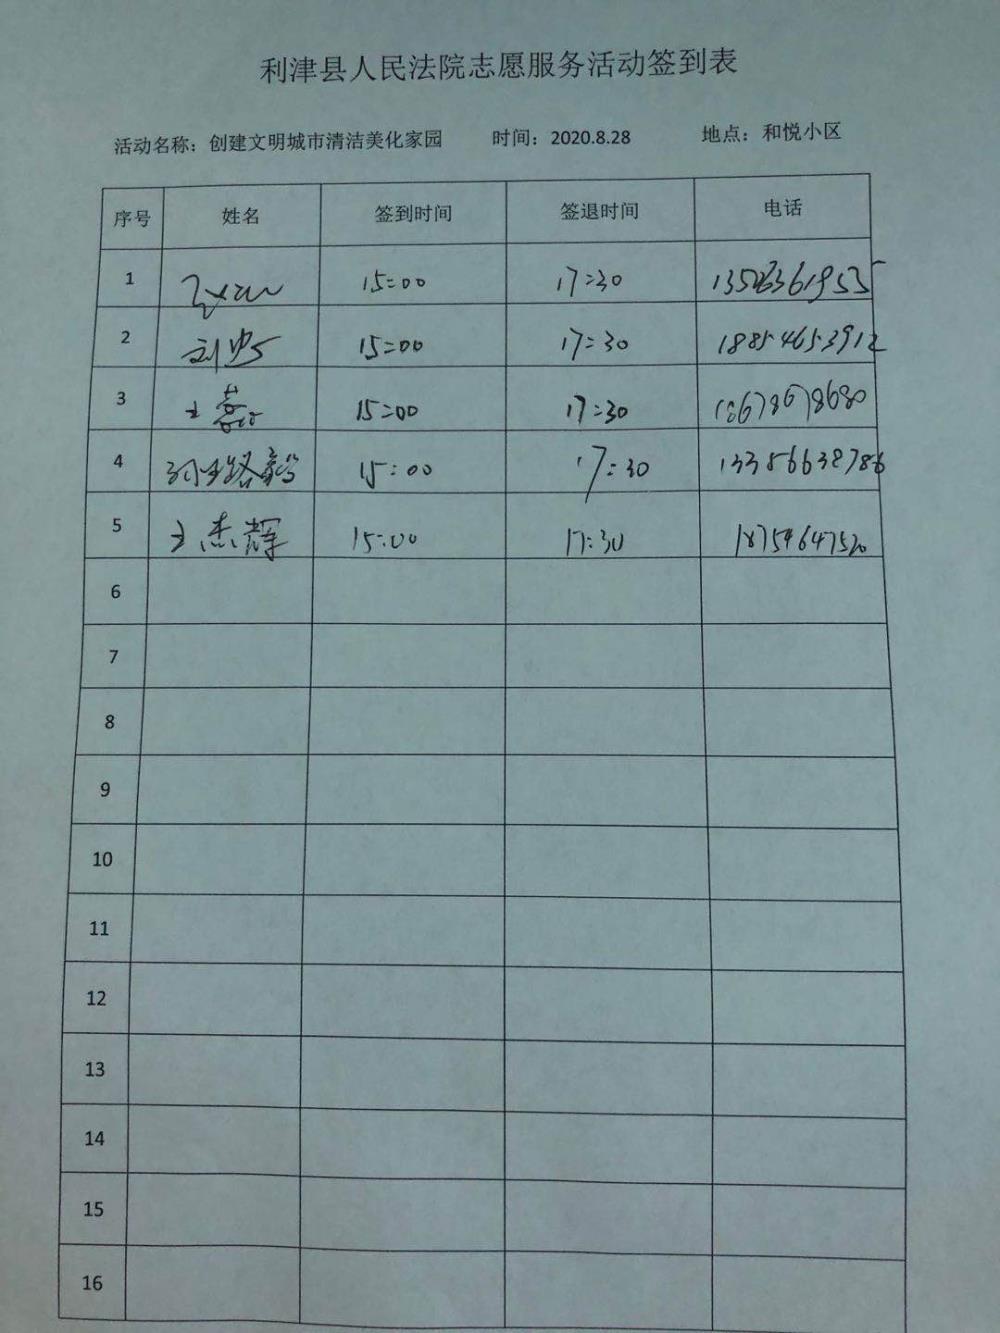 利津县人民法院志愿服务活动签到表
活动名称：创建文明城市清洁美化家园 时间：2020.8.28 地点：和悦小区
序号 姓名 签到时间 签退时间 电话
1 15:00 17:30
2 刘 15:00 17:30 18854653912
3 王 15:00 17:30 18678678680
4 15:00 17:30 13386638786
5 王杰辉 15:00 17:30 18759647520
6
7
8
9
10
11
12
13
14
15
16